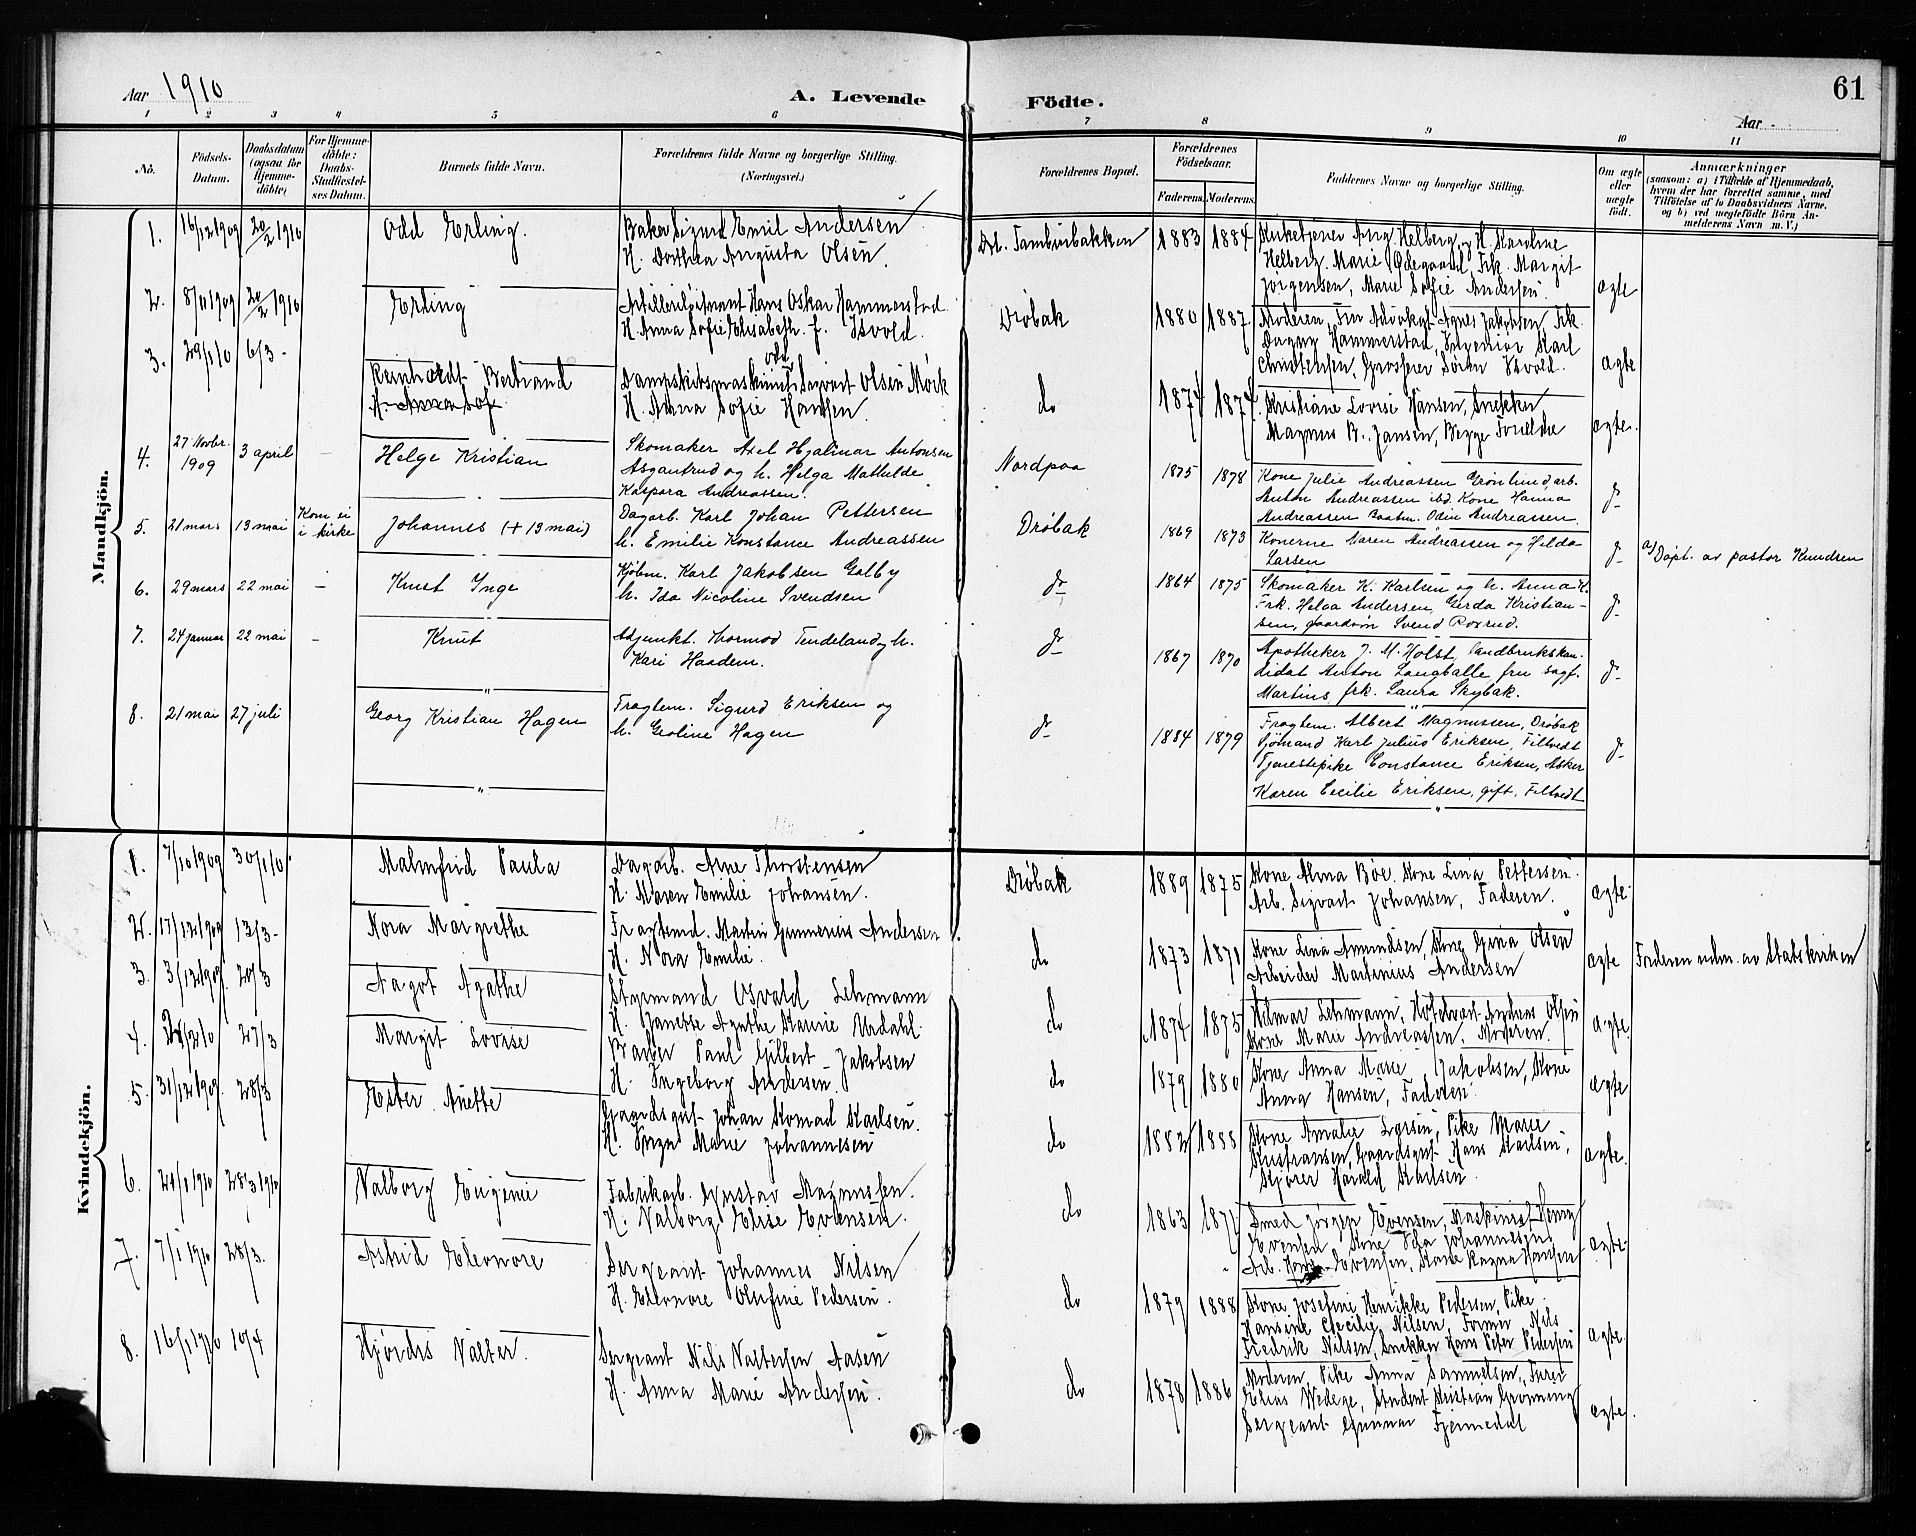 Aar 1910
A. Levende
Födte.
Aar
61
1 2 3 4 5 6 7 8 9 10 11
No.
Födsels-
Datum.
Daabsdatum
(ogsaa for
Hjemme-
döbte)
For Hjemme-
döbte:
Daabs-
Stadfæstel-
ses Datum.
Barnets fulde Navn.
Forældrenes fulde Navne og borgerlige Stilling.
(Næringsvei.)
Forældrenes Bopæl.
Forældrenes
Födselsaar.
Faderens.
Moderens.
Faddernes Navne og borgerlige Stilling.
Om ægte
eller
uægte
födt.
Anmærkninger
(saasom: a) i Tilfælde af Hjemmedaab,
hvem der har forrettet samme, med
Tilföielse af to Daabsvidners Navne,
og b) ved uægtefödte Börn An-
melderens Navn m. V.)
Mandkjön.
1. 16/12 1909 20/2 1910 Odd Erling.
Baker Sigurd Emil Andersen
H. Dorthea Augusta Olsen.
Tamburbakken 1883 1884
Kirketjener Aug. Helberg, H. Karoline
Helberg. Marie Ødegaard, Frk. Margit
Jørgensen, Marie Sofie Andersen.
ægte
2. 8/11 1909 20/2 1910 Erling
Artilleriløitnant Hans Oskar Hammerstad
H. Anna Sofie Elisabeth f. Hvold.
Drøbak 1880 1887
Moderen, Fru Advokat Agnes Jakobsen, Frk.
Dagny Hammerstad, Ingeniør Karl
Christensen, Grosserer Sören Hvold.
ægte
3. 29/1 10 6/3 - Reinholdt Bertrand
H. Anna Sof
Dampskibsmaskinist Sigvart Olsen Mörk
H. Anna Sofie Hansen
do 1874 1874
Kristiane Lovise Hansen, Snekker
Magnus B. Jansen, Begge Forældre
ægte.
4. 27 Novbr. 1909 3 april — Helge Kristian
Skomaker Axel Hjalmar Antonsen
Asgautrud og h. Helga Mathilde
Kaspara Andreassen.
Nordpaa 1875 1878
Kone Julie Andreassen Grønlund, arb.
Anton Andreassen ibd. Kone Hanna
Andreassen Baatm. Odin Andreassen.
do
5. 21 mars 13 mai Kom ei
i kirke
Johannes (+ 13 mai)
Dagarb. Karl Johan Pettersen
h. Emilie Konstance Andreassen
Drøbak 1869 1873
Konerne Maren Andreassen og Hilda
Larsen
do
a) Døpt. av pastor Knudsen
6. 29 mars 22 mai - Knut Inge
Kjøbm. Karl Jakobsen Galby
h. Ida Nicoline Svendsen
do 1864 1875
Skomaker K. Karlsen og h. Anna K.
Frk. Helga Andersen, Gerda Kristian-
sen, gaardsøn Svend Røsrud.
do
7. 24 januar 22 mai - Knut
Adjunkt. Hormod Tendeland, h.
Kari Haadem.
do 1867 1870
Apotheker J. M. Holst, landbrukskan-
didat Anton Langballe fru sagf.
Martins frk. Laura Skybak.
do
8. 21 mai 27 juli Georg Kristian Hagen
Fragtem. Sigurd Eriksen og
h. Geoline Hagen
do 1884 1879
Fragtem. Albert Magnussen, Drøbak
Sjømand Karl Julius Eriksen, Filtvedt
Tjenestepike Constance Eriksen, Asker
Karen Cecilie Eriksen, gift, Filtvedt
do
Kvindekjön.
1. 7/10 1909 30/1 10 Malmfrid Paula
Dagarb. Arne Thorstensen
H. Maren Emilie Johansen.
Drøbak 1889 1875
Kone Alma Böe. Kone Lina Pettersen.
Arb. Sigvart Johansen, Faderen.
ægte.
2. 17/12 1909 13/3 - Nora Margrethe
Fragtemd. Martin Gunnerius Andersen
H. Nora Emilie.
do 1873 1871
Kone Lina Amundsen, Kone Gina Olsen
Arbeider Martinius Andersen
ægte
Forderen udm. av Statskirken
3. 3/12 1909 20/3 Aagot Agathe
Styrmand Osvald Lehmann
H. Janette Agathe Laurie Undahl.
do 1874 1875
Hilmar Lehmann, Hotelvært Andreas Olsen
Kone Marie Andreassen, Moderen.
ægte
4. 27/3 Margit Lovise
Barber Paul Gilbert Jakobsen
H. Ingeborg Andersen.
do 1879 1880
Kone Anna Marie Jakobsen, Kone
Anna Hansen, Faderen.
ægte
5. 31/12 1909 28/3 Ester Anette
Gaardsgut Johan Konrad Karlsen.
H. Marie Johannesen
do 1882 1888
Kone Amalie Larsen, Pike Marie
Kristiansen, Gaardsgut Hans Karlsen,
Kjører Harald Karlsen.
ægte.
6. 24/1 1910 28/3 1910 Valborg Eugenie
Fabrikarb. Gustav Magnussen.
H. Valborg Elise Evensen.
do 1863 1871
Smed Jörgen Evensen, Maskinist Henry
Evensen, Kone Ida Johannesen,
Arb. Evensen, Kone Ragna Hansen
ægte.
7. 7/1 1910 28/3. Astrid Eleonore
Sergeant Johannes Nilsen
H. Eleonore Olufine Pedersen.
do 1879 1888
Kone Josefine Henrikke Pedersen, Pike
Hansine Cecilie Nilsen, Former Nils
Fredrik Nilsen, Snekker Hans Peter Pedersen
ægte.
8. 16/1 1910 10/4 Hjørdis Valter.
Sergeant Nils Valtersen Aasen
H. Anna Marie Andersen.
do 1878 1886
Moderen, Pike Anna Samuelsen, Furer
Elias Wedege, Student Kristian Grønning
Sergeant Gunnar Fjermedal
ægte.